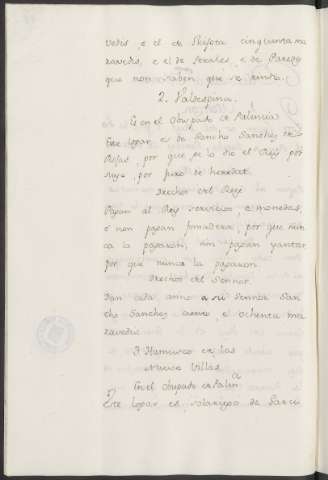 vedis, e el de Skifora cinquanta ma
ravedis, e el de Perales, e de Paredes
que non saben que se rinde.
2. Valdespina.
Es en el Obispado de Palencia
Este logar es de Sancho Sanchez de
Rojas, por que se lo dio el Rey por
suyo, por juro de heredat.
Drechos del Rey
Pagan al Rey servicios, e monedas,
e non pagan fonsadera, por que nun
ca la pagaron, nin pagan yantar
por que nunca la pagaron.
Drechos del Sennor.
Dan cada anno a su Sennor San
cho Sanchez ciento e ochenta ma
ravedis.
3 Hamusco en las
Nueve Villas
En el Obispado de Palen.ª
Este logar es solariego de Garci